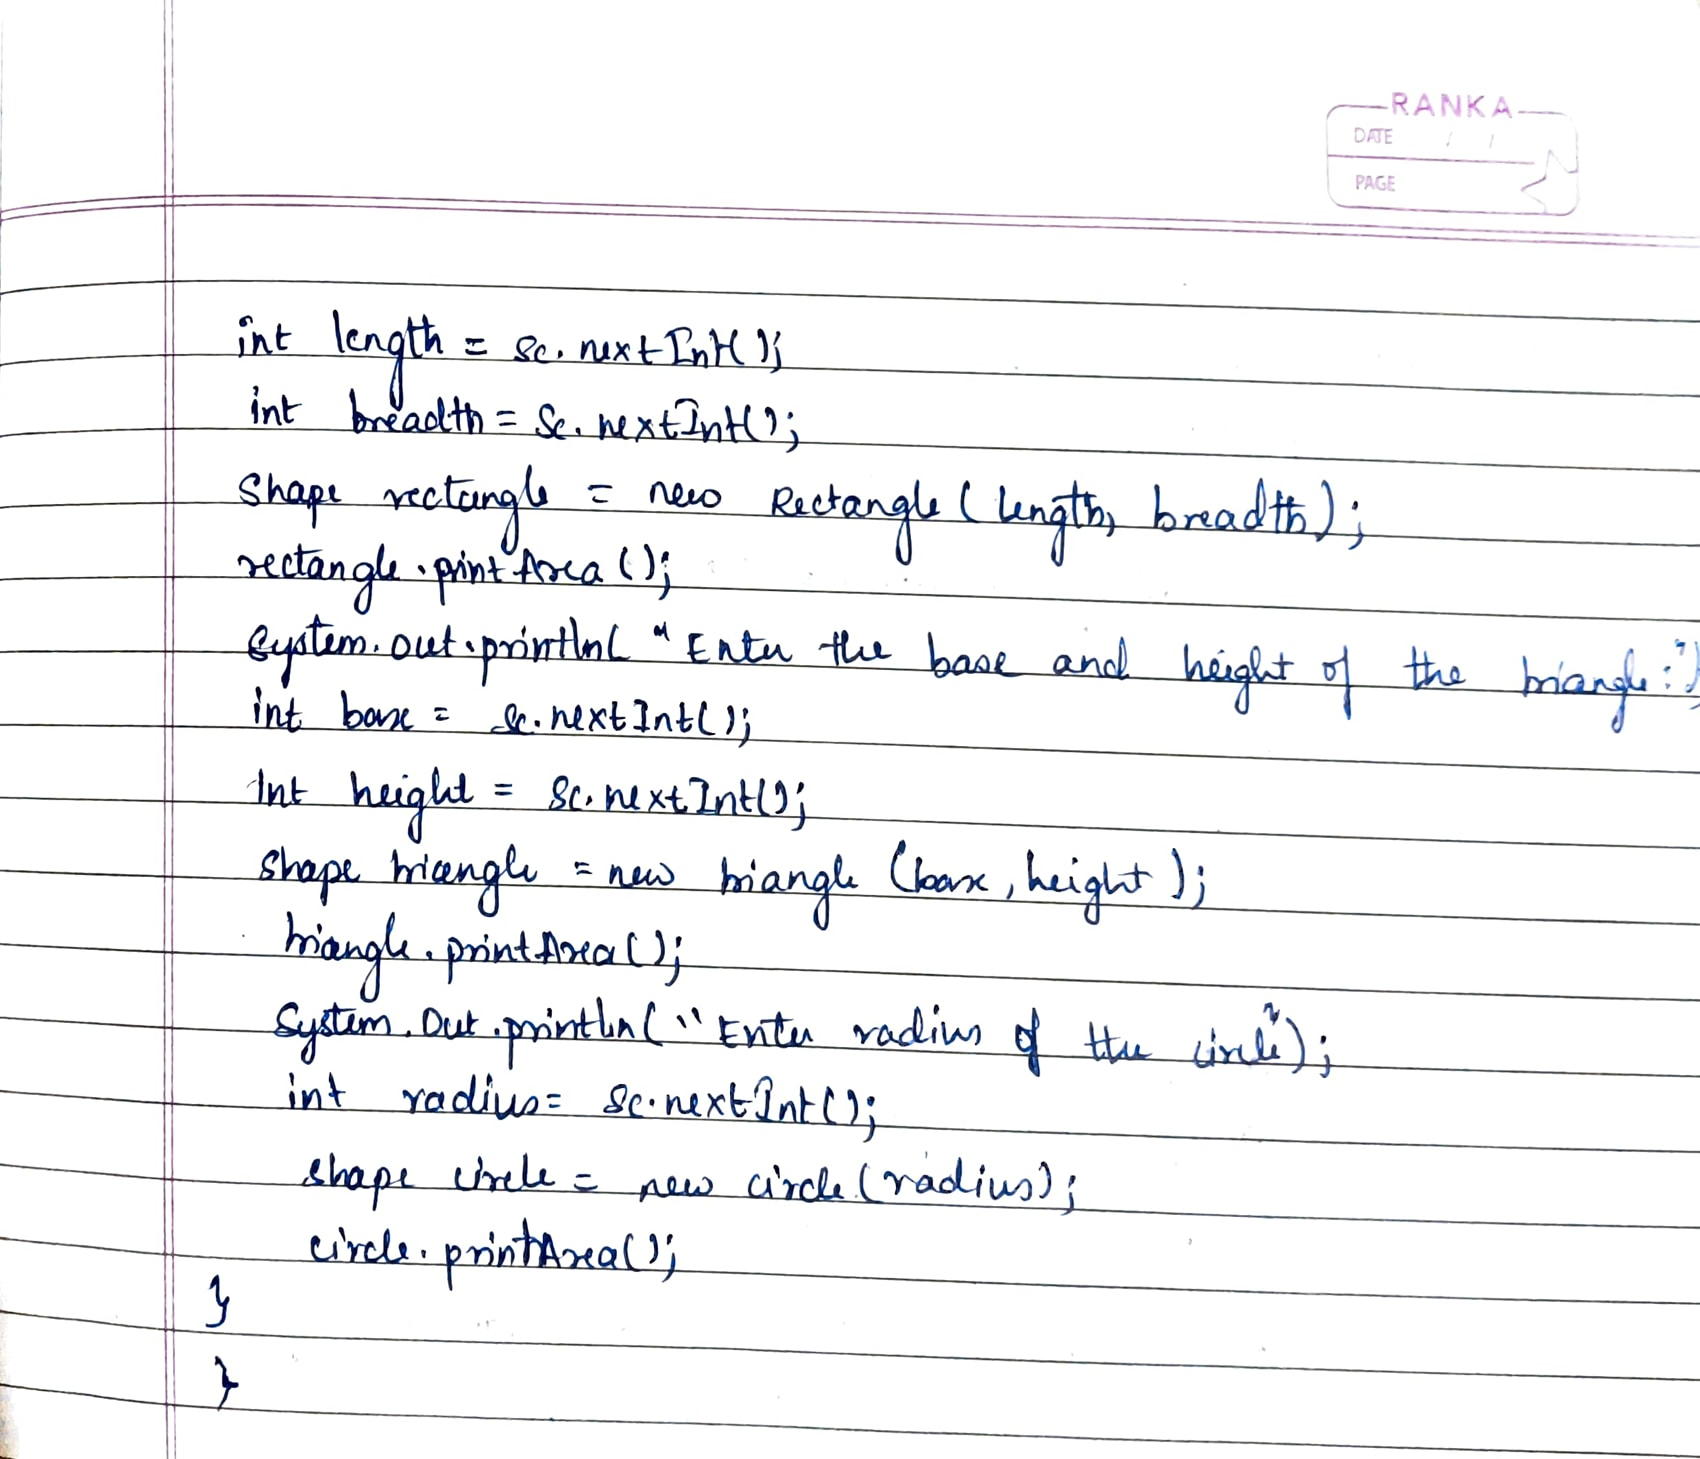 RANKA
DATE / /
PAGE
int length = sc.nextInt();
int breadth = Sc.nextInt();
Shape rectangle = new Rectangle (length, breadth);
rectangle.printArea();
System.out.println( "Enter the base and height of the triangle:")
int base = Sc.nextInt();
Int height = Sc.nextInt();
Shape triangle = new triangle (base, height);
triangle.printArea();
System.Out.println("Enter radius of the circle");
int radius= Sc.nextInt();
shape circle = new circle(radius);
circle.printArea();
}
}